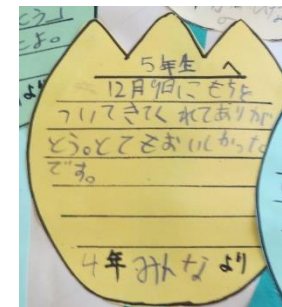 こう
よ。
より
5年生 へ
12月9日にもちを
ついてきてくれてありが
とう。とてもおいしかった
です。
4年 みんな より